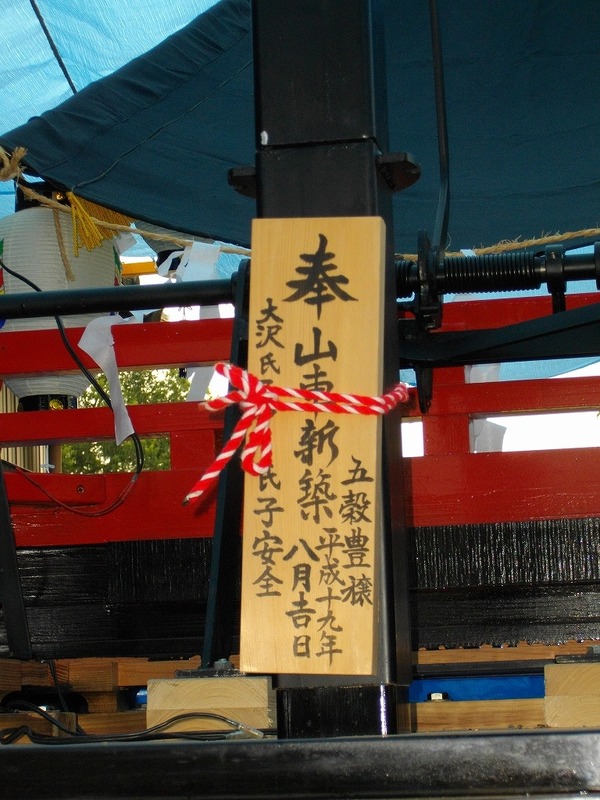 五穀豊穣
平成十九年
八月吉日
奉山車新築
大沢氏
氏子安全